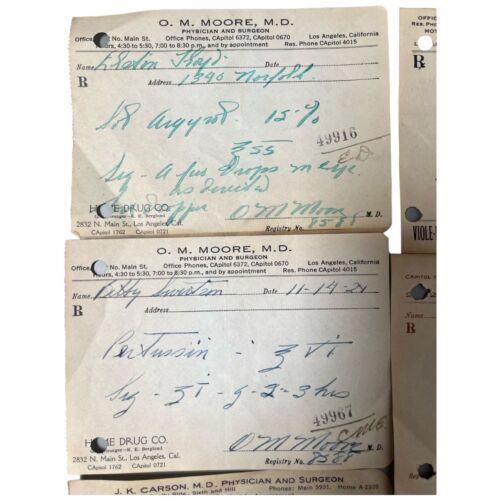 O. M. MOORE, M.D.
PHYSICIAN AND SURGEON
Office No. Main St. Office Phones, CApitol 6372, CApitol 0670 Los Angeles, California
Hours, 4:30 to 5:30, 7:00 to 8:30 p.m., and by appointment Res. Phone CApitol 4015
Name Floyd Date
R Address 1390 Norfolk
Sol Argyrol 15%
℥ss
49916
Sig - A few Drops in eye
as directed
Dropper
HOME DRUG CO. O M Moore M.D.
R. E. Berglund
2832 N. Main St., Los Angeles, Cal. Registry No. 8588
CApitol 1762 CApitol 0721
O. M. MOORE, M.D.
PHYSICIAN AND SURGEON
Office No. Main St. Office Phones, CApitol 6372, CApitol 0670 Los Angeles, California
Hours, 4:30 to 5:30, 7:00 to 8:30 p.m., and by appointment Res. Phone CApitol 4015
Name Betty Date 11-14-21
R Address
Pertussin - ℥ vi
Sig - ʒi - q - 2-3 hrs
49967
HOME DRUG CO. O M Moore M.D.
R. E. Berglund
2832 N. Main St., Los Angeles, Cal. Registry No. 8588
CApitol 1762 CApitol 0721
J. K. CARSON, M.D. PHYSICIAN AND SURGEON
Sixth and Hill Phones: Main 5931, Home A-2328
OFFIC
RES. PHO
HO
R
VIOLE-
CAPITOL
Name
R